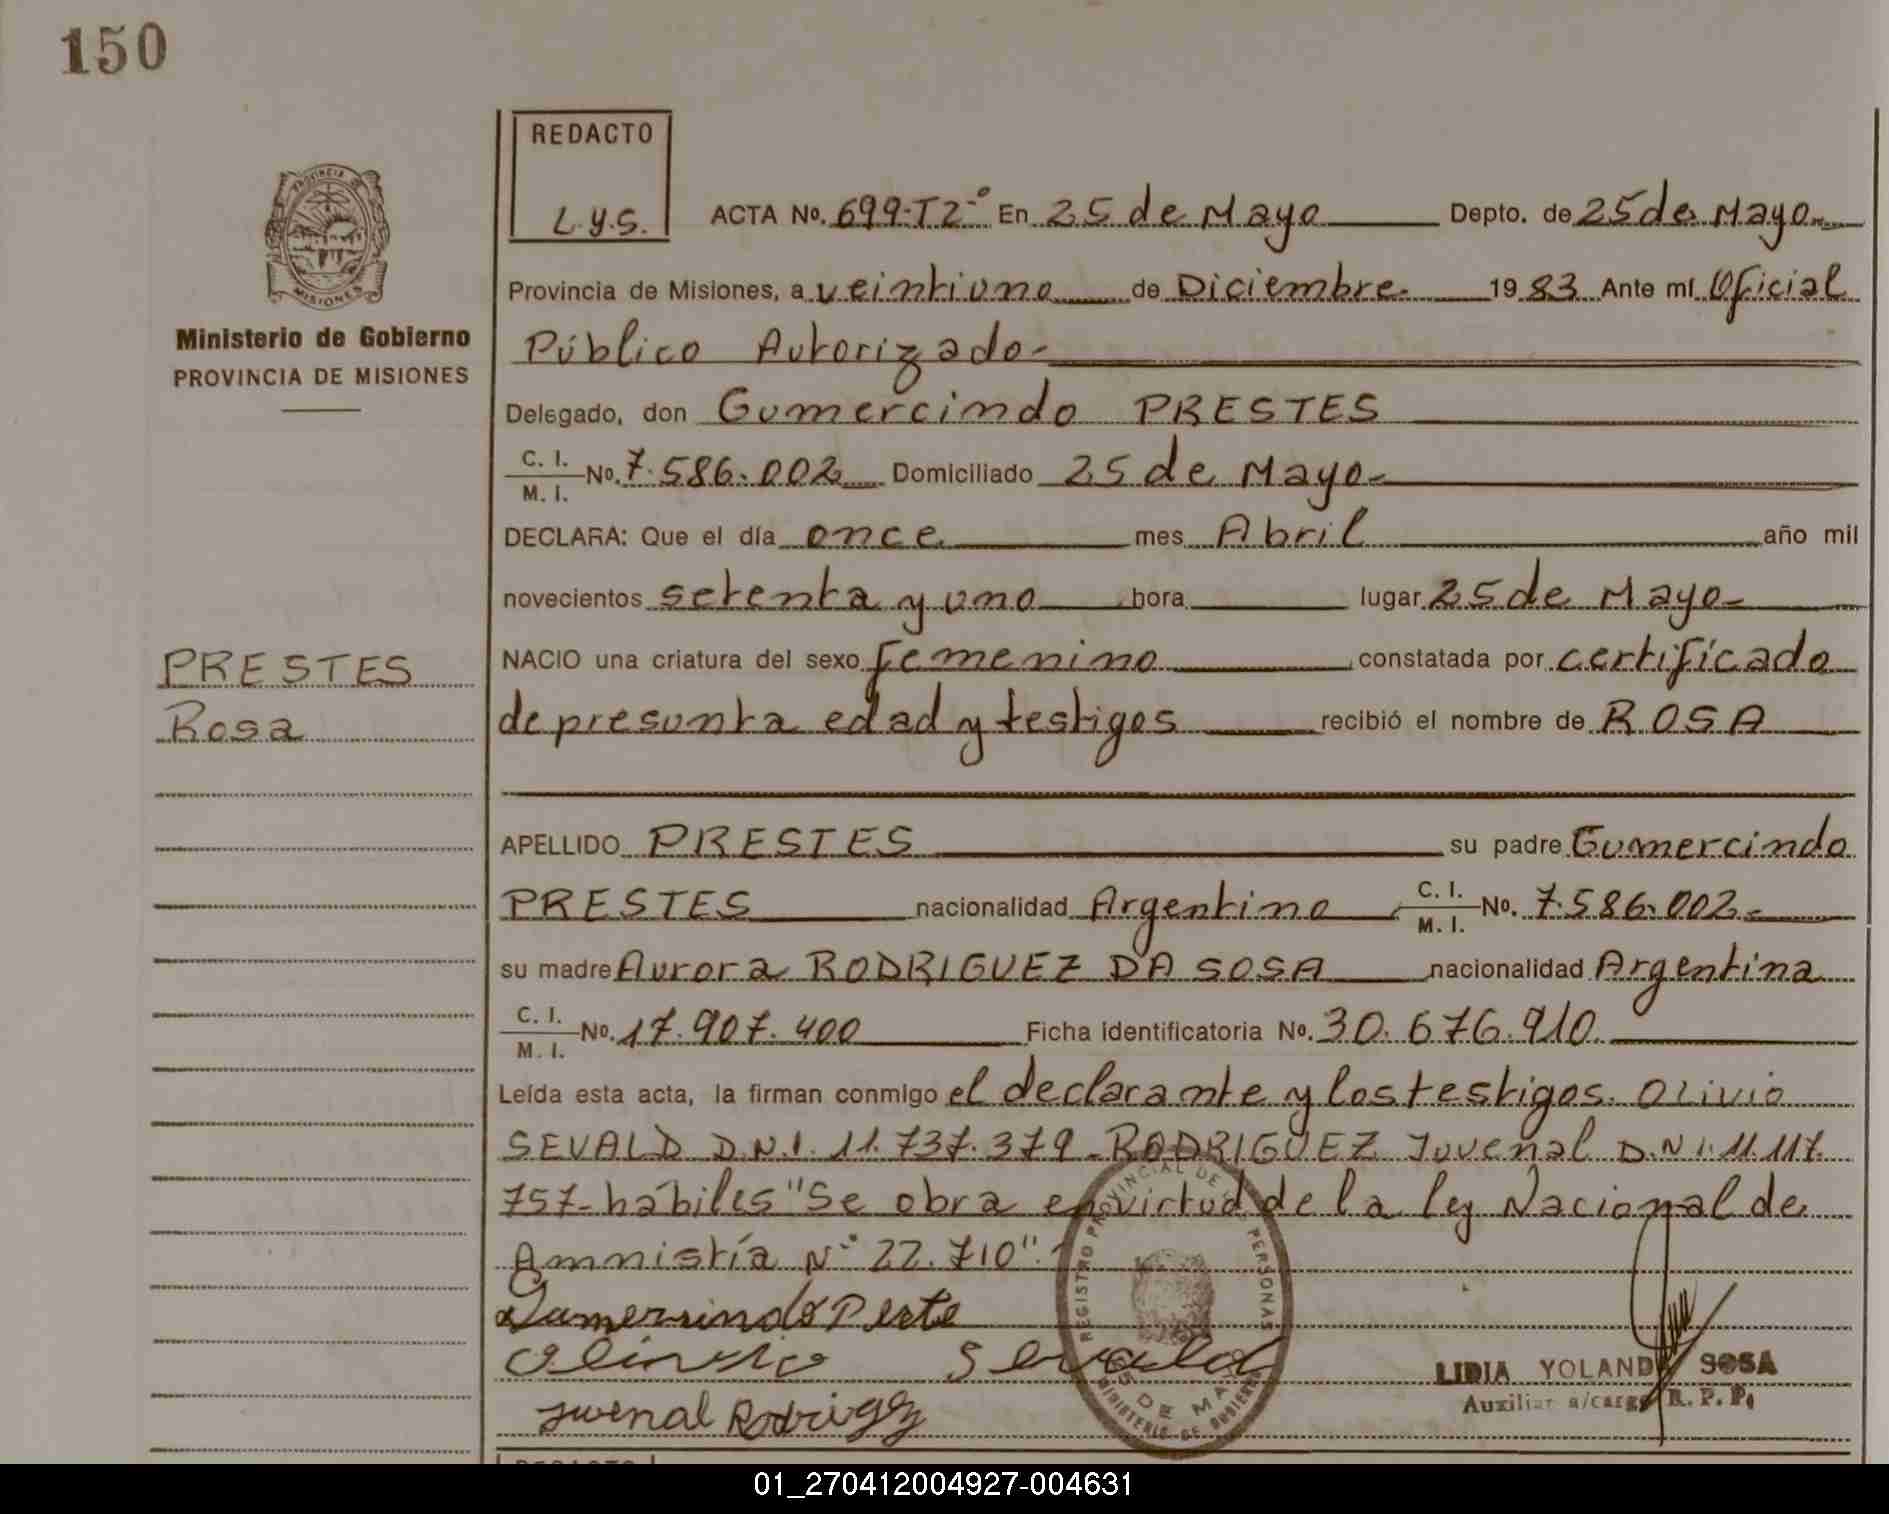 150
REDACTO
L.Y.S.
PROVINCIA DE
MISIONES
Ministerio de Gobierno
PROVINCIA DE MISIONES
ACTA No. 699-T2-° En 25 de Mayo Depto. de 25 de Mayo
Provincia de Misiones, a veintiuno de Diciembre 1983 Ante mí Oficial
Público Autorizado-
Delegado, don Gumercindo PRESTES
C. I. M. I. No. 7.586.002 Domiciliado 25 de Mayo-
DECLARA: Que el día once mes Abril año mil
novecientos setenta y uno hora lugar 25 de Mayo-
NACIO una criatura del sexo femenino constatada por certificado
PRESTES
Rosa
de presunta edad y testigos recibió el nombre de ROSA
APELLIDO PRESTES su padre Gumercindo
PRESTES nacionalidad Argentino C. I. M. I. No. 7.586.002-
su madre Aurora RODRIGUEZ DA SOSA nacionalidad Argentina
C. I. M. I. No. 17.907.400 Ficha identificatoria No. 30.676.910.
Leída esta acta, la firman conmigo el declarante y los testigos. Olivio
SEVALD D.N.I. 11.737.379-RODRIGUEZ Juvenal D.N.I. 11.117.
757-hábiles "Se obra en virtud de la ley Nacional de
Amnistía N° 22.710".
Gumersindo Preste
Olinvio Sevald
Juenal Rodrigz
REGISTRO PROVINCIAL DE PERSONAS
25 DE MAYO
MINISTERIO DE GOBIERNO
LIDIA YOLANDA SOSA
Auxiliar a/cargo R. P. P.
REDACTO
01_270412004927-004631